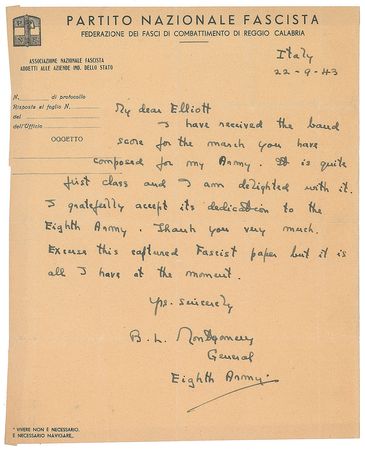 PARTITO NAZIONALE FASCISTA
FEDERAZIONE DEI FASCI DI COMBATTIMENTO DI REGGIO CALABRIA
ASSOCIAZIONE NAZIONALE FASCISTA
ADDETTI ALLE AZIENDE IND. DELLO STATO
Italy
22-9-43
N. di protocollo
Risposta al foglio N.
del
dell'Ufficio
OGGETTO
My dear Elliott
I have received the band
score for the march you have
composed for my Army. It is quite
first class and I am delighted with it.
I gratefully accept its dedication to the
Eighth Army. Thank you very much.
Excuse this captured Fascist paper but it is
all I have at the moment.
Yrs. sincerely
B. L. Montgomery
General
Eighth Army.
"VIVERE NON È NECESSARIO.
È NECESSARIO NAVIGARE,,